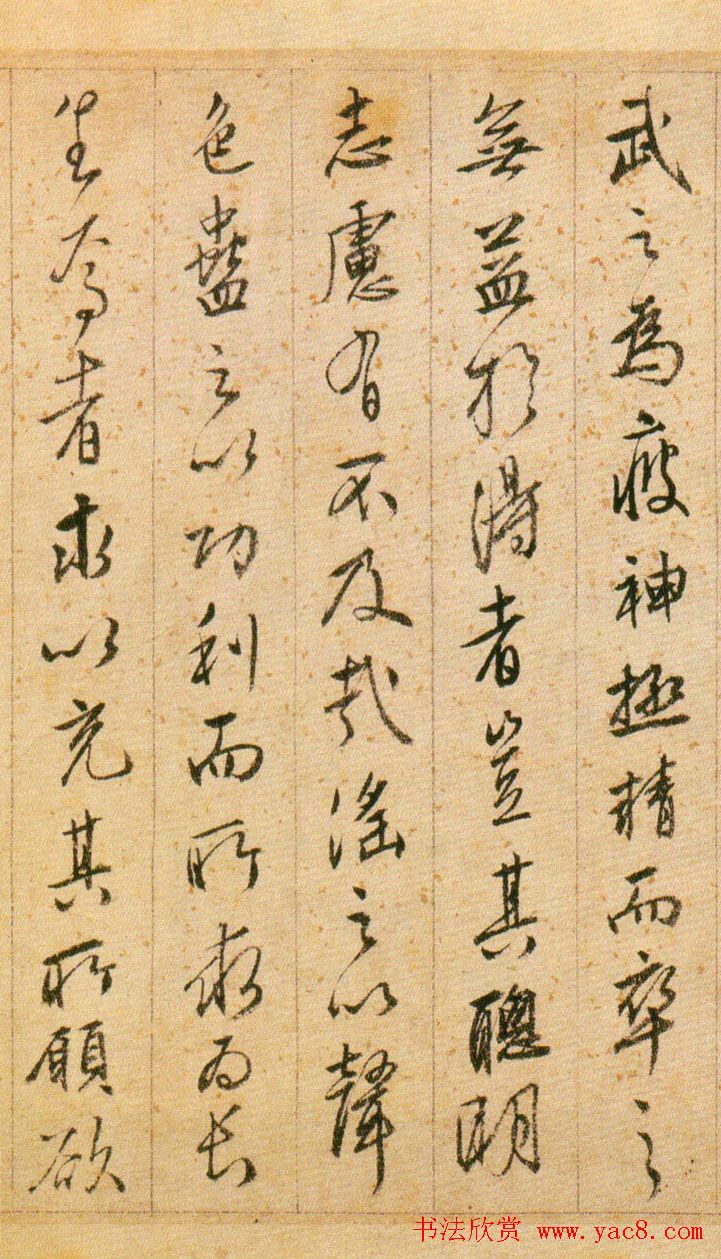 武之為疲神極精而卒之
無益於得者豈其聰明
志慮有不及哉滛之以聲
色蠱之以功利而所求為長
生焉者求以充其所願欲
书法欣赏 www.yac8.com